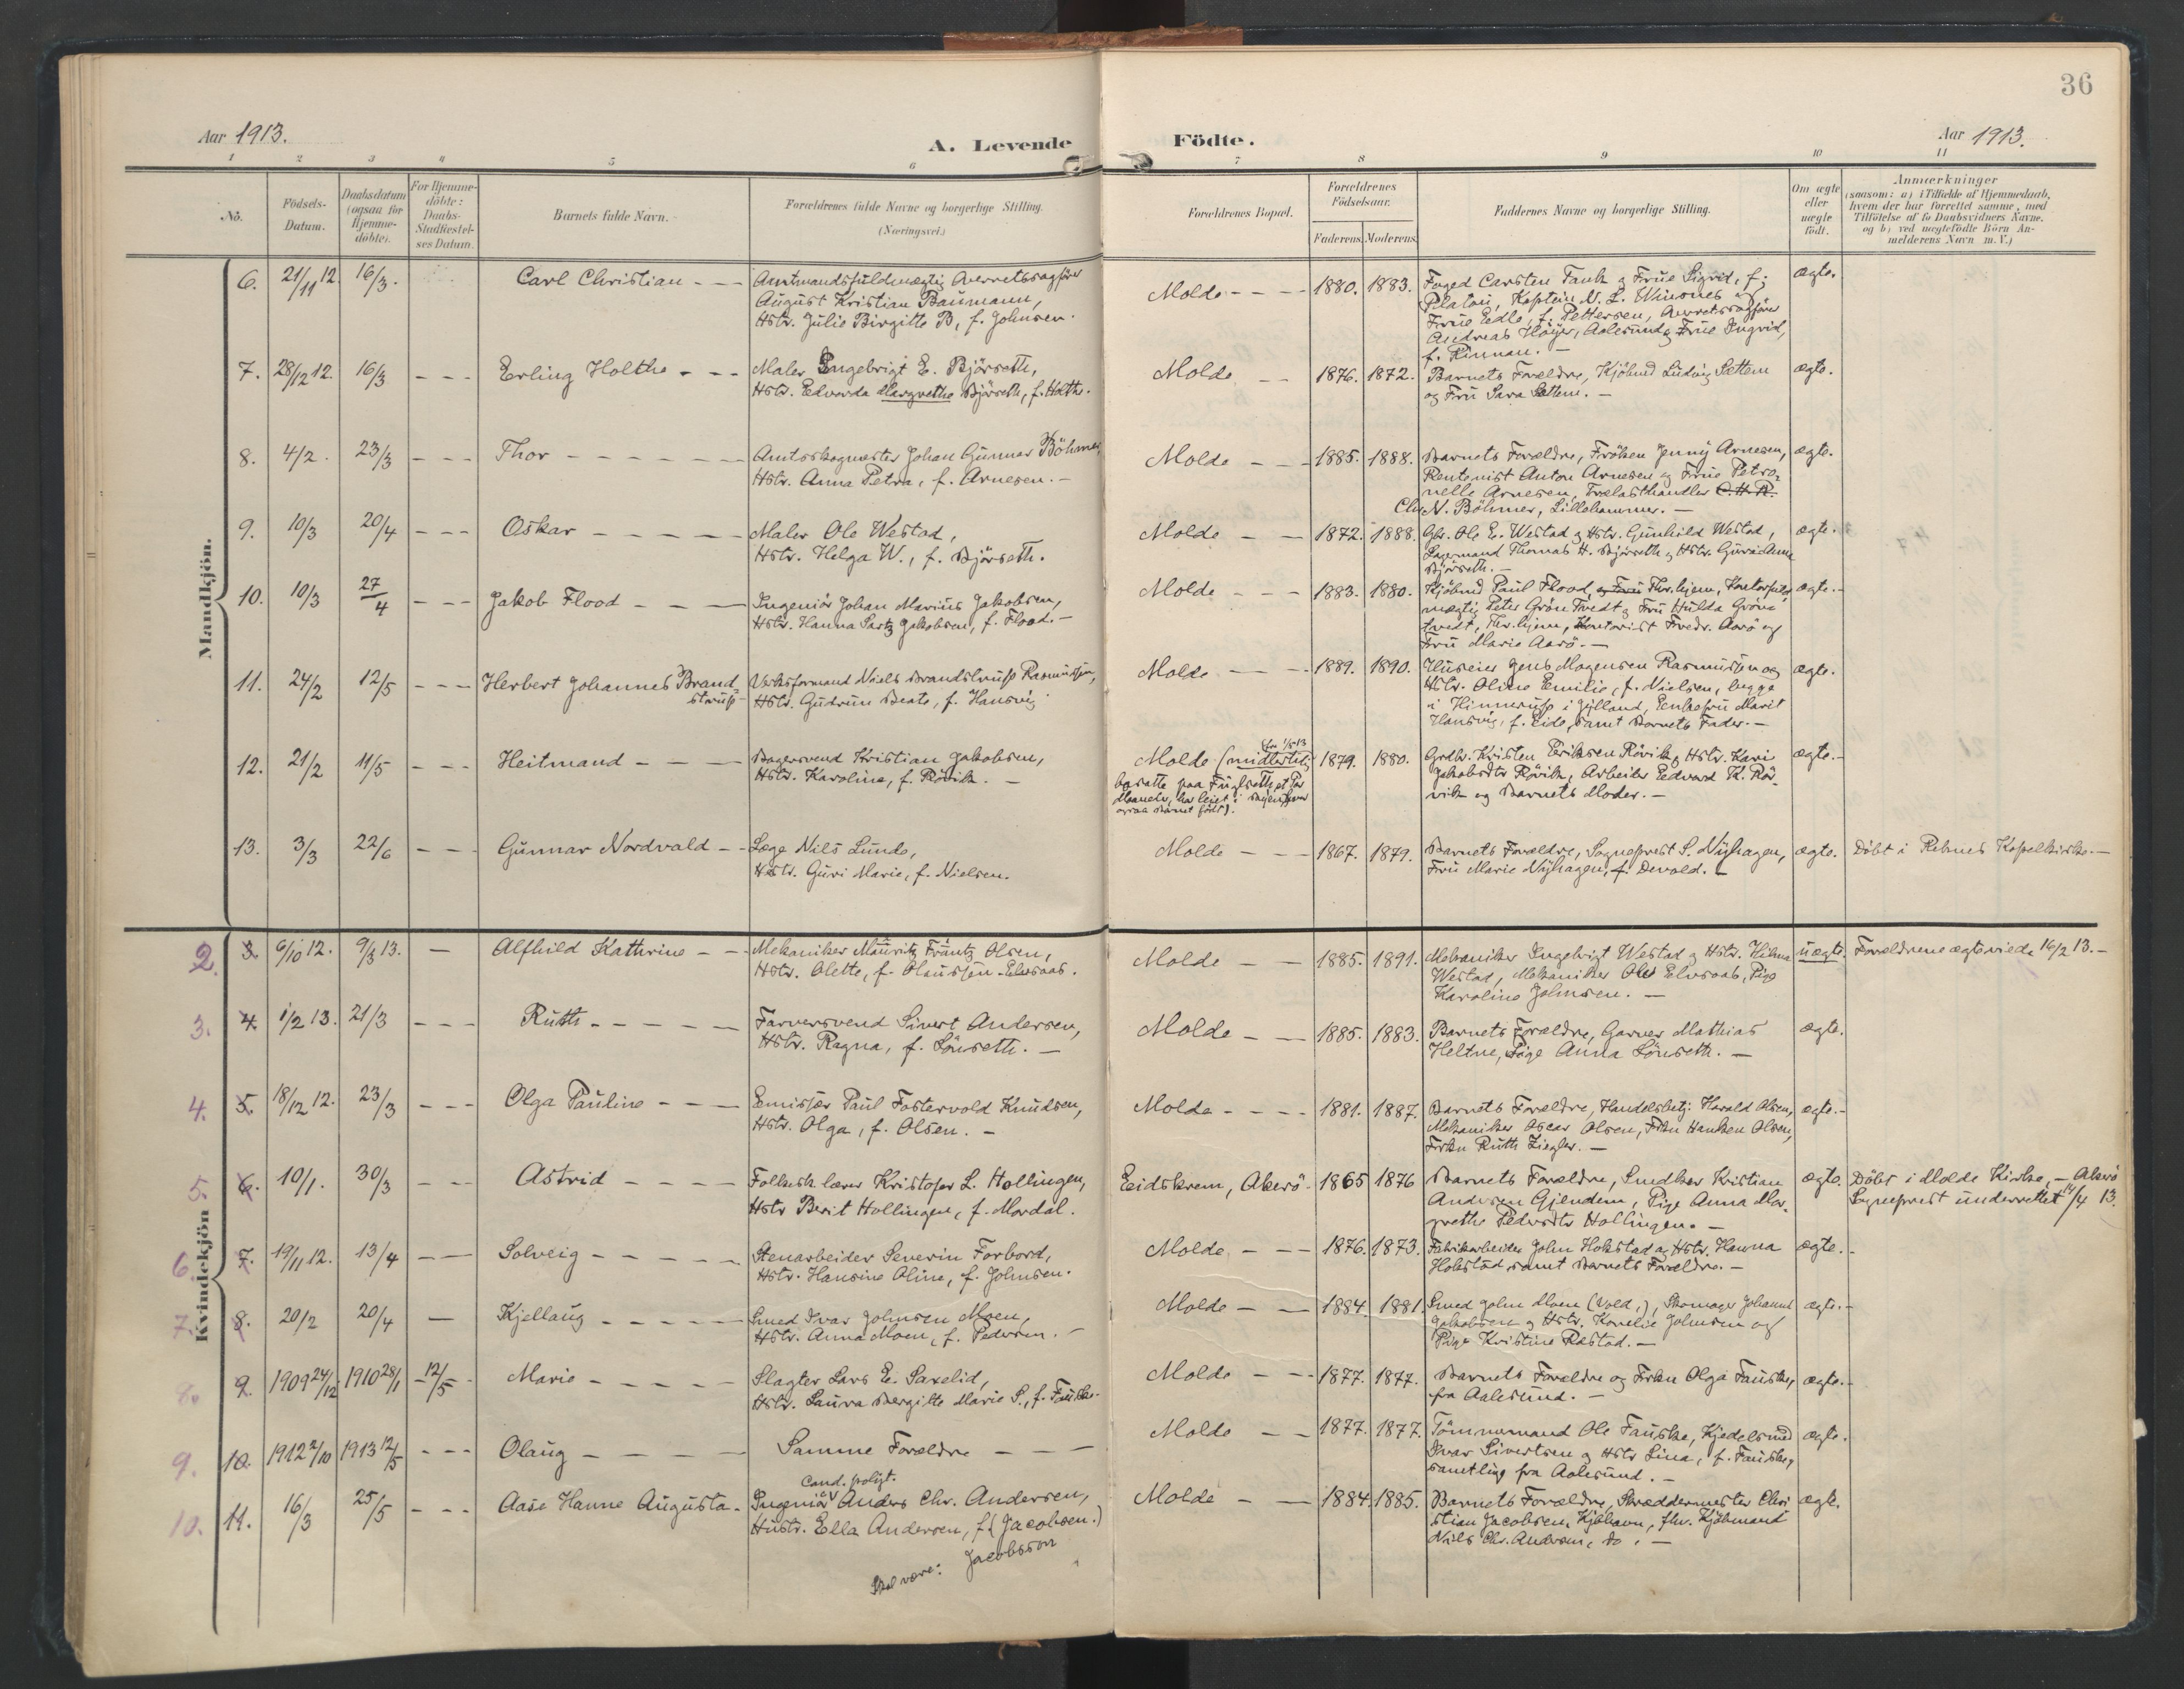 36
Aar 1913.
A. Levende Födte.
Aar 1913.
1 2 3 4 5 6 7 8 9 10 11
No.
Födsels-Datum.
Daabsdatum (ogsaa for Hjemme-döbte).
For Hjemme-döbte: Daabs-Stadfæstel-ses Datum.
Barnets fulde Navn.
Forældrenes fulde Navne og borgerlige Stilling.
(Næringsvei.)
Forældrenes Bopæl.
Forældrenes Födselsaar.
Faderens. Moderens.
Faddernes Navne og borgerlige Stilling.
Om ægte eller uægte födt.
Anmærkninger
(saasom: a) i Tilfælde af Hjemmedaab,
hvem der har forrettet samme, med
Tilföielse af to Daabsvidners Navne.
og b) ved uægtefödte Börn An-
melderens Navn m.V.)
Mandkjön.
6. 21/11 12. 16/3. Carl Christian - - - Amtmandsfuldmægtig Overretssagförer
August Kristian Baumann,
Hstr. Julie Birgitte B, f. Johnsen.
Molde - - - 1880. 1883. Foged Carsten Tank & Frue Sigrid, f.
Platou, Kaptein N. L. og
Frue Edle, f. Pettersen, Overretssagförer
Andreas Höyer, Aalesund & Frue Ingrid,
f. Rinnan. -
ægte.
7. 28/12 12. 16/3 - - - Erling Holthe - - - Maler Engebrigt E. Björseth,
Hstr. Edvarda Margrethe Björseth, f. Holthe.
Molde - - 1876. 1872. Barnets Forældre, Kjöbmd Ludvig Sættem
og Fru Sara Sættem. -
ægte.
8. 4/2. 23/3 - - - Thor - - - - Amtsskogmester Johan Gunnar Böhmer,
Hstr. Anna Petra, f. Arnesen. -
Molde - - - 1885. 1888. Barnets Forældre, Fröken Jenny Arnesen,
Rentenist Anton Arnesen & Frue Petro-
nelle Arnesen, Trælasthandler C. H. R.
Chr. N. Böhmer, Lillehammer. -
ægte.
9. 10/3 20/4 - - - Oskar - - - - Maler Ole Westad,
Hstr. Helga W., f. Björseth.
Molde - - 1872. 1888. Gbr. Ole E. Westad & Hstr. Gunhild Westad,
Lagermand Thomas H. Björseth & Hstr. Guri Anna
Björseth. -
ægte.
10. 10/3 27/4 - - - Jakob Flood - - - Ingeniör Johan Marius Jakobsen,
Hstr. Hanna Sartz Jakobsen, f. Flood. -
Molde - - - 1883. 1880. Kjöbmd Paul Flood, & Fru Thr.hjem, Kontorfuld-
mægtig Peter Grön Tvedt & Fru Hulda Grön
tvedt, Thr.hjem, Kontorist Fredr. Aarö og
Fru Marie Aarö. -
ægte.-
11. 24/2 12/5 - - - Herbert Johannes Brand-
strup - Verksformand Niels Brandstrup Rasmussen,
Hstr. Gudrun Beate, f. Hansvig
Molde - - - 1889. 1890. Huseier Jens Mogensen Rasmussen og
Hstr. Oline Emilie, f. Nielsen, begge
i Hinnerup i Jylland, Enkefru Marit
Hansvig, f. Eide, samt Barnets Fader. -
ægte.
12. 21/2 11/5 - - - Heitmand - - - Bagersvend Kristian Jakobsen,
Hstr. Karoline, f. Rövik. -
Molde (midlertid. fra 1/5 13
bosatte paa Fuglseth et Par
Maaneder, har leiet i Byen, hvor
ogsaa Barnet födt).
1879. 1880. Grdbr. Kristen Eriksen Rövik & Hstr. Kari
Jakobsdtr Rövik, Arbeider Edvard K. Rö-
vik og Barnets Moder. -
ægte.-
13. 3/3 22/6 - - - Gunnar Nordvald - - Læge Nils Lunde,
Hstr. Guri Marie, f. Nielsen.
Molde - - - 1867. 1879. Barnets Forældre, Sogneprest S. Nyhagen,
Fru Marie Nyhagen, f. Devold. -
ægte. Döbt i Reknes Kapelkirke. -
Kvindekjön
2. 3. 6/10 12. 9/3 13. - Alfhild Kathrine - - Mekaniker Mauritz Frantz Olsen,
Hstr. Olette, f. Olaussen-Elvsaas.
Molde - - 1885. 1891. Mekaniker Ingebrigt Westad & Hstr. Helma
Westad, Mekaniker Ole Elvsaas, Pige
Karoline Johnsen. -
uægte. Forældrene ægteviede 16/2 13. -
3. 4. 1/2 13. 21/3 - - - Ruth - - - - Farversvend Sivert Andersen,
Hstr. Ragna, f. Lönseth. -
Molde - - 1885. 1883. Barnets Forældre, Garver Mathias
Heltne, Pige Anna Lönseth. -
ægte.
4. 5. 18/12 12. 23/3 - - - Olga Pauline - - - Emissær Paul Fostervold Knudsen,
Hstr. Olga, f. Olsen. -
Molde - - - 1881. 1887. Barnets Forældre, Handelsbetj. Harald Olsen,
Mekaniker Oscar Olsen, Frkn Hanken Olsen,
Frkn Ruth Ziegler. -
ægte.-
5. 6. 10/1. 30/3 - - Astrid - - - Folkesk.lærer Kristofer L. Hollingen,
Hstr Berit Hollingen, f. Mordal.
Eidskrem, Akerö - 1865 1876 Barnets Forældre, Landhdr Kristian
Andersen Gjendem, Pige Anna Mar-
grethe Pedersdtr Hollingen. -
ægte. Döbt i Molde Kirke, - Akerö
Sogneprest underrettet 14/4 13.
6. 7. 19/11 12. 13/4 - - Solveig - - - - Stenarbeider Severin Forbord,
Hstr. Hansine Oline, f. Johnsen.
Molde - - - 1876. 1873. Fabrikarbeider John Hokstad & Hstr. Hanna
Hokstad samt Barnets Forældre. -
ægte.-
7. 8. 20/2 20/4 - Kjellaug - - - - Smed Ivar Johnsen Moen,
Hstr. Anna Moen, f. Pedersen. -
Molde - - 1884. 1881. Smed John Moen (Vold,), Skomager Johannes
Jakobsen & Hstr. Kornelie Johnsen og
Pige Kristine Røstad. -
ægte.-
8. 9. 1909 24/12 1910 28/1 - 12/5 - Marie - - - - Slagter Lars E. Saxelid,
Hstr. Laura Bergitte Marie S., f. Fauske.
Molde - - - 1877. 1877. Barnets Forældre og Frkn Olga Fauske,
fra Aalesund. -
ægte.-
9. 10. 1912 2/10 1913 12/5 - - - Olaug - - - - Samme Forældre - - -
Molde - - 1877. 1877. Tömmermand Ole Fauske, Kjedelsmed
Ivar Sivertsen & Hstr Lina, f. Fauske,
samtlige fra Aalesund. -
ægte.
10. 11. 16/3 25/5 - - - Aase Hanne Augusta - cand. polyt.
Ingeniör Anders Chr. Andersen,
Hustr. Ella Andersen, f. (Jacobsen.)
Skal være: Jacobsson
Molde - - 1884. 1885. Barnets Forældre, Skræddermester Chri
stian Jacobsen, Kjöbhavn, fhv. Kjöbmand
Niels Chr. Andersen, do. -
ægte.